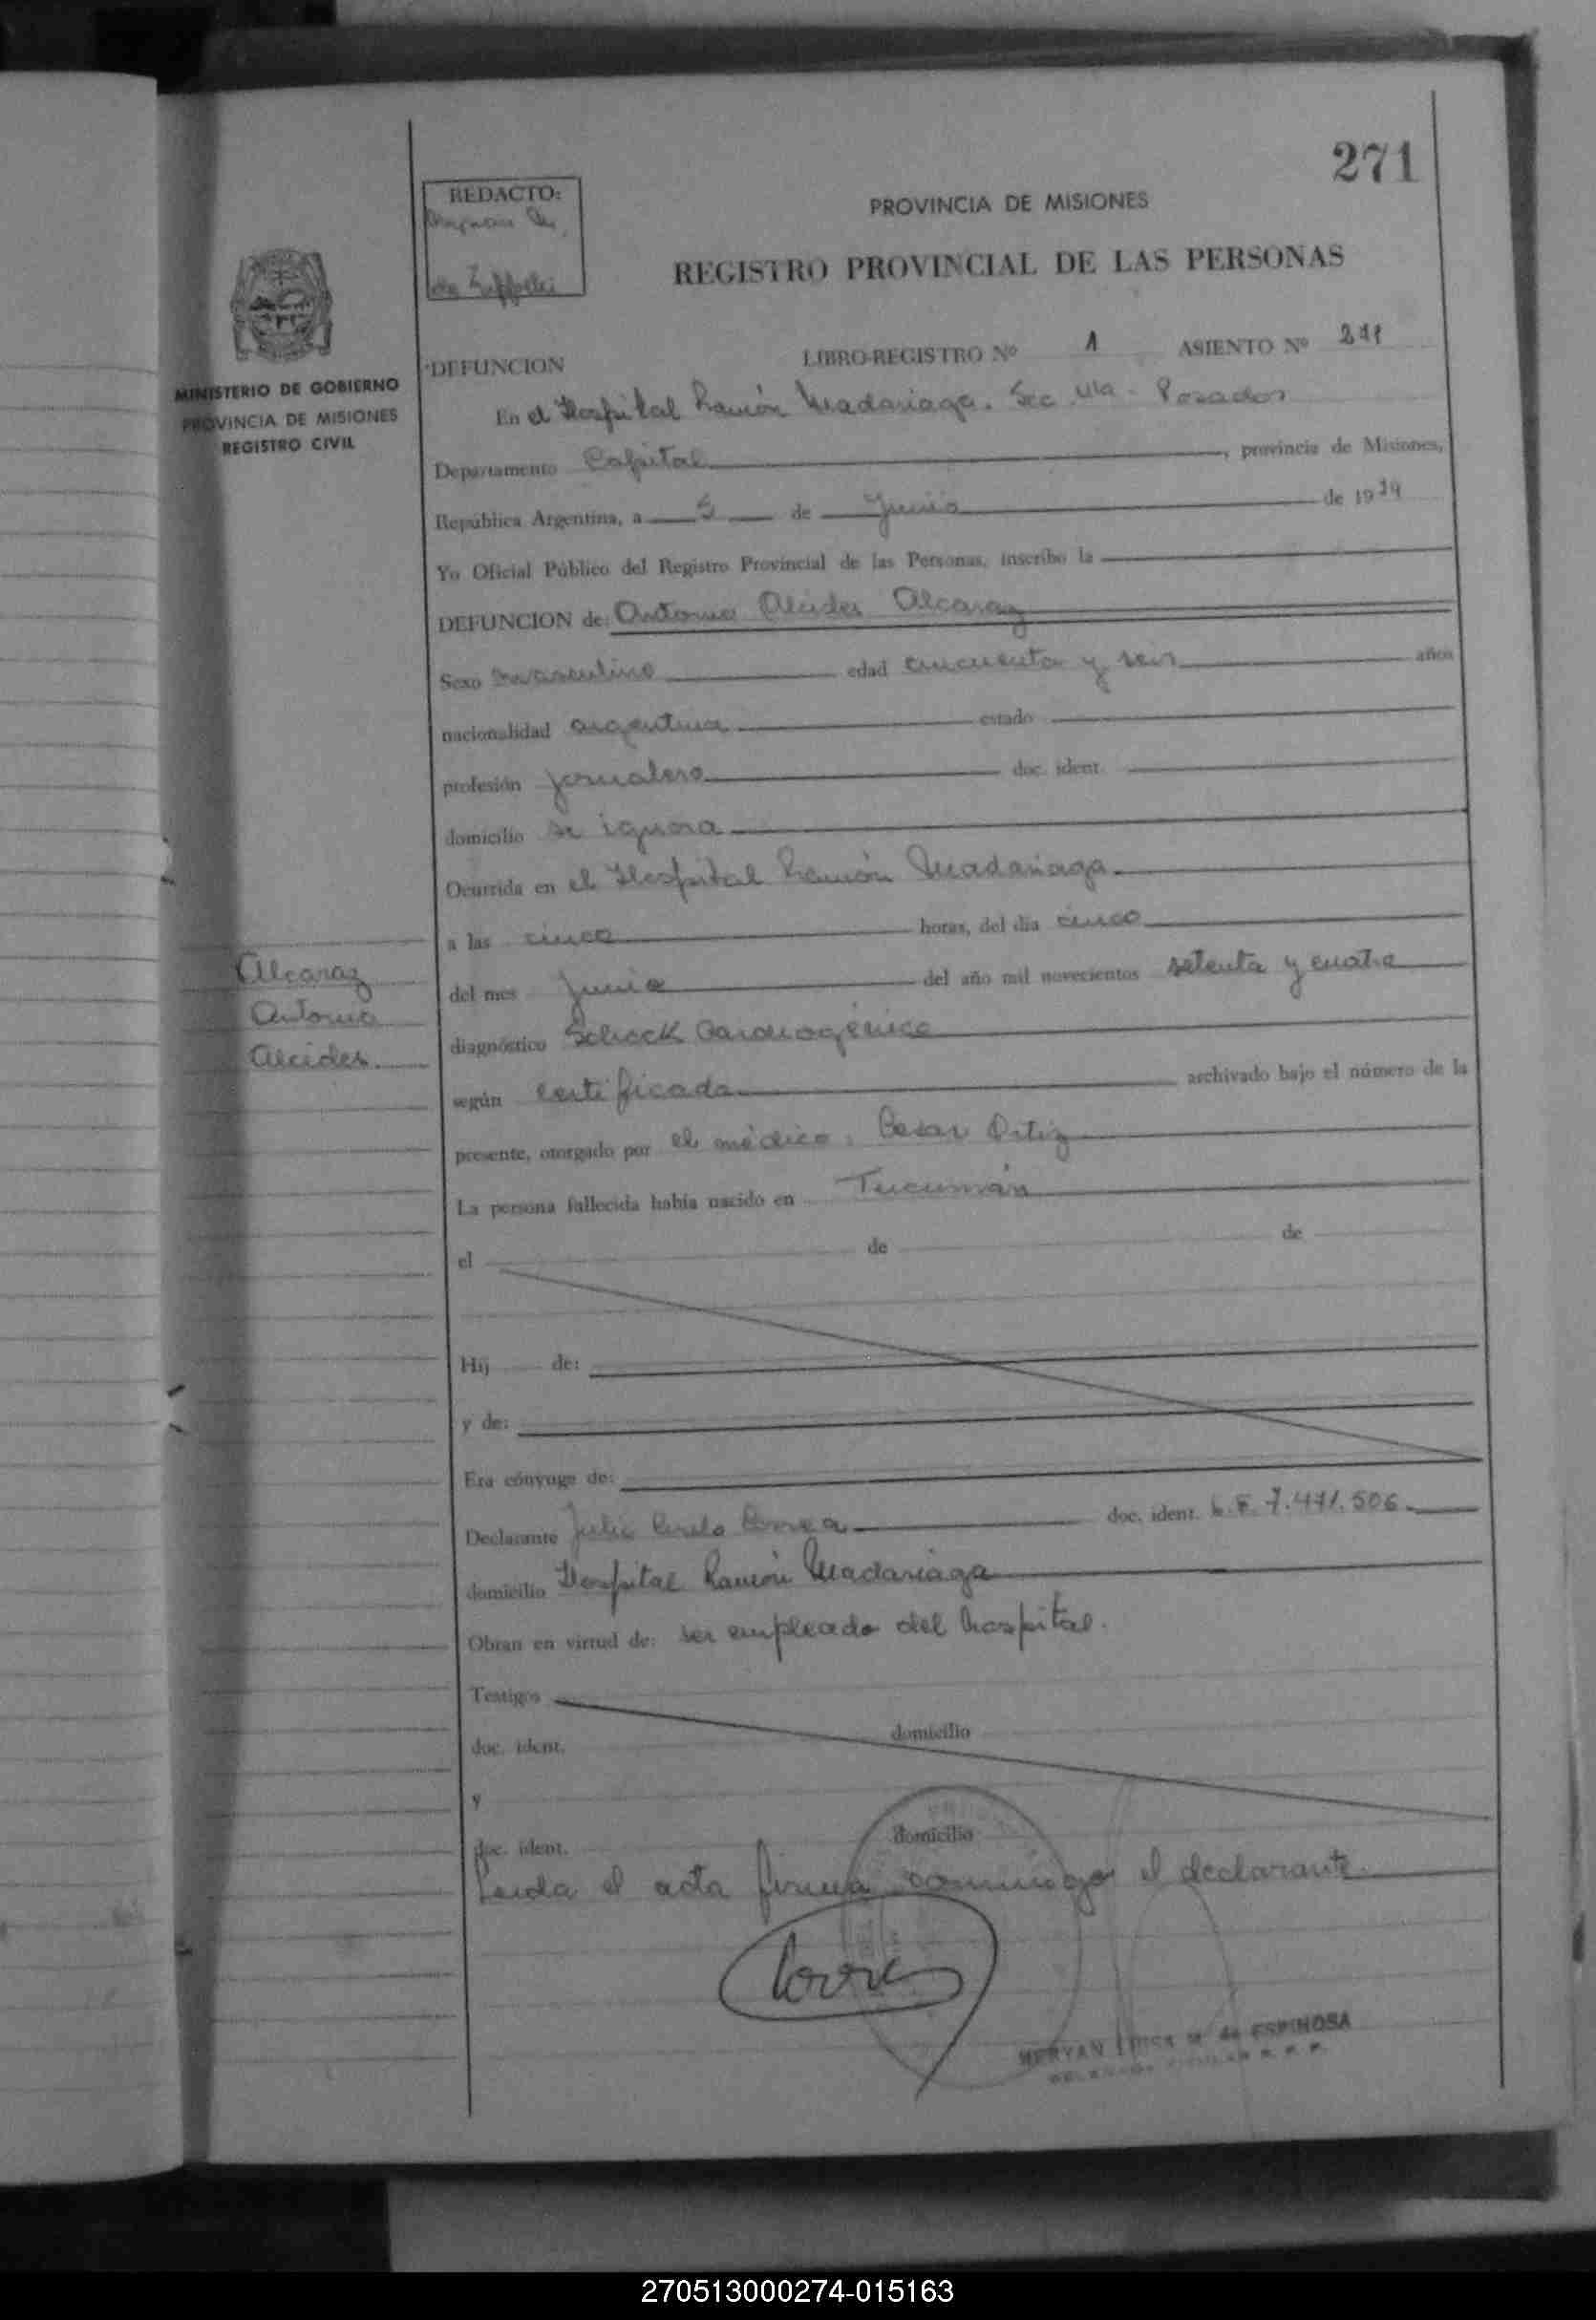 271
REDACTO:
PROVINCIA DE MISIONES
REGISTRO PROVINCIAL DE LAS PERSONAS
MINISTERIO DE GOBIERNO
PROVINCIA DE MISIONES
REGISTRO CIVIL
DEFUNCION LIBRO-REGISTRO Nº 1 ASIENTO Nº 271
En el Hospital Ramón Madariaga. Sec Posadas
Departamento Capital, provincia de Misiones,
República Argentina, a 5 de Junio de 1974
Yo Oficial Público del Registro Provincial de las Personas, inscribo la
DEFUNCION de: Antonio Alcides Alcaraz
Sexo masculino edad cincuenta y seis años
nacionalidad argentina estado
profesión jornalero doc. ident.
domicilio se ignora
Ocurrida en el Hospital Ramón Madariaga
a las cinco horas, del día cinco
del mes Junio del año mil novecientos setenta y cuatro
Alcaraz
Antonio
Alcides
diagnóstico Schock Cardiogénico
según certificado archivado bajo el número de la
presente, otorgado por el médico: Cesar Ortiz
La persona fallecida había nacido en Tucumán
el de de
Hij de:
y de:
Era cónyuge de:
Declarante Julio Correa doc. ident. L.E. 7.471.506
domicilio Hospital Ramón Madariaga
Obran en virtud de: ser empleado del hospital.
Testigos
doc. ident. domicilio
y
doc. ident. domicilio
Leida el acta firma conmigo el declarante
MERYAN M. de ESPINOSA
270513000274-015163